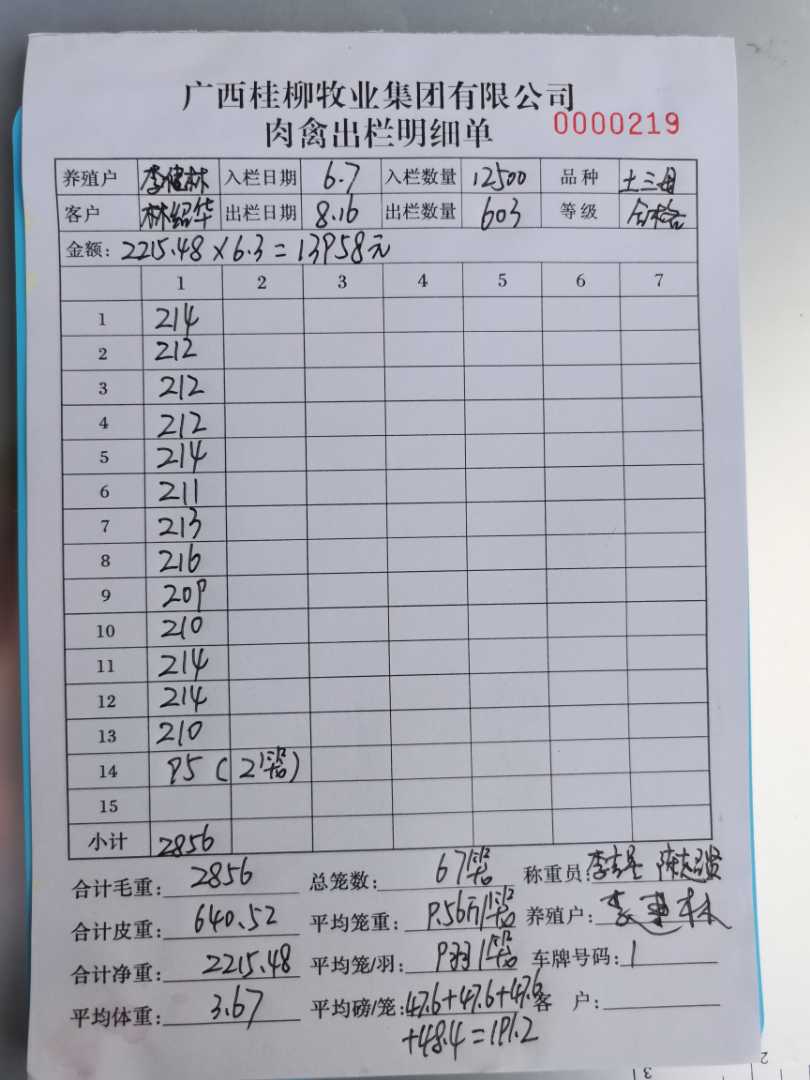 广西桂柳牧业集团有限公司
肉禽出栏明细单 0000219
养殖户 李健林 入栏日期 6.7 入栏数量 12500 品种 土三母
客户 林绍华 出栏日期 8.16 出栏数量 603 等级 合格
金额: 2215.48×6.3=13958元
1 2 3 4 5 6 7
1 214
2 212
3 212
4 212
5 214
6 211
7 213
8 216
9 209
10 210
11 214
12 214
13 210
14 95(2笼)
15
小计 2856
合计毛重: 2856 总笼数: 67笼 称重员:
合计皮重: 640.52 平均笼重: 9.56斤/笼 养殖户: 李健林
合计净重: 2215.48 平均笼/羽: 9羽/笼 车牌号码: 1
平均体重: 3.67 平均磅/笼: 47.6+47.6+47.6 客户:
+48.4=191.2
2
3